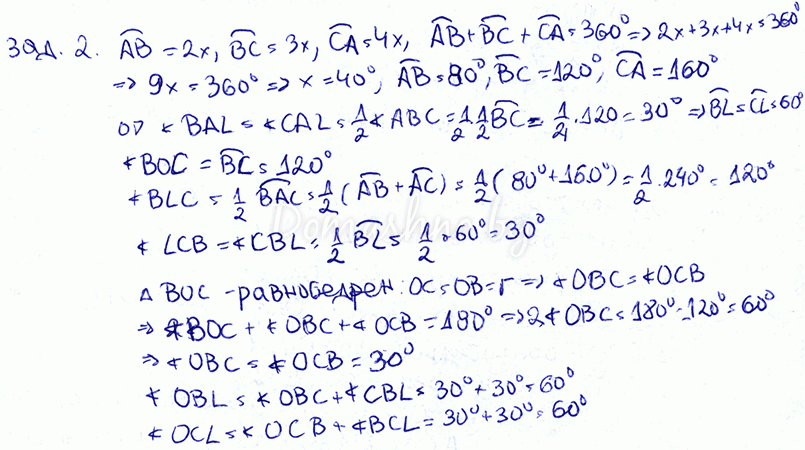 Зад. 2. AB = 2x, BC = 3x, CA = 4x, AB + BC + CA = 360° => 2x + 3x + 4x = 360°
=> 9x = 360° => x = 40°, AB = 80°, BC = 120°, CA = 160°
От ∢ BAL = ∢ CAL = 1/2 ∢ ABC = 1/2 1/2 BC = 1/4 . 120 = 30° => BL = CL = 60°
∢ BOC = BC = 120°
∢ BLC = 1/2 BAC = 1/2 (AB + AC) = 1/2 (80° + 160°) = 1/2 . 240° = 120°
∢ LCB = ∢ CBL = 1/2 BL = 1/2 . 60° = 30°
Δ BOC - равнобедрен: OC = OB = r => ∢ OBC = ∢ OCB
=> ∢ BOC + ∢ OBC + ∢ OCB = 180° => 2∢ OBC = 180° - 120° = 60°
=> ∢ OBC = ∢ OCB = 30°
∢ OBL = ∢ OBC + ∢ CBL = 30° + 30° = 60°
∢ OCL = ∢ OCB + ∢ BCL = 30° + 30° = 60°